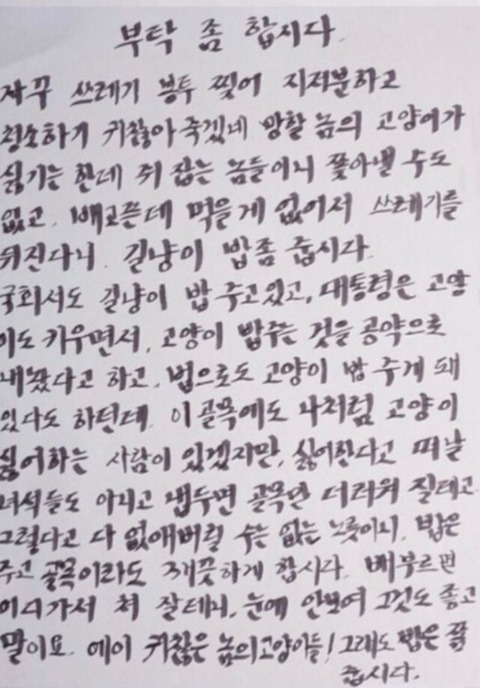 부탁 좀 합시다.
자꾸 쓰레기 봉투 찢어 지저분하고
청소하기 귀찮아 죽겠네 망할 놈의 고양이가
싫기는 한데 쥐 잡는 놈들이니 쫓아낼 수도
없고, 배고픈데 먹을 게 없어서 쓰레기를
뒤진다니. 길냥이 밥 좀 줍시다.
국회서도 길냥이 밥 주고 있고, 대통령은 고양
이도 키우면서, 고양이 밥주는 것을 공약으로
내놨다고 하고, 법으로도 고양이 밥 주게 돼
있다도 하던데. 이 골목에도 나처럼 고양이
싫어하는 사람이 있겠지만, 싫어한다고 떠날
녀석들도 아니고 냅두면 골목만 더러워 질테고
그렇다고 다 없애버릴 수는 없는 노릇이니, 밥은
주고 골목이라도 깨끗하게 합시다. 배부르면
어디가서 쳐 잘테니, 눈에 안보여 그것도 좋고
말이요. 에이 귀찮은 놈의고양이들! 그래도 밥은 꼭
줍시다.